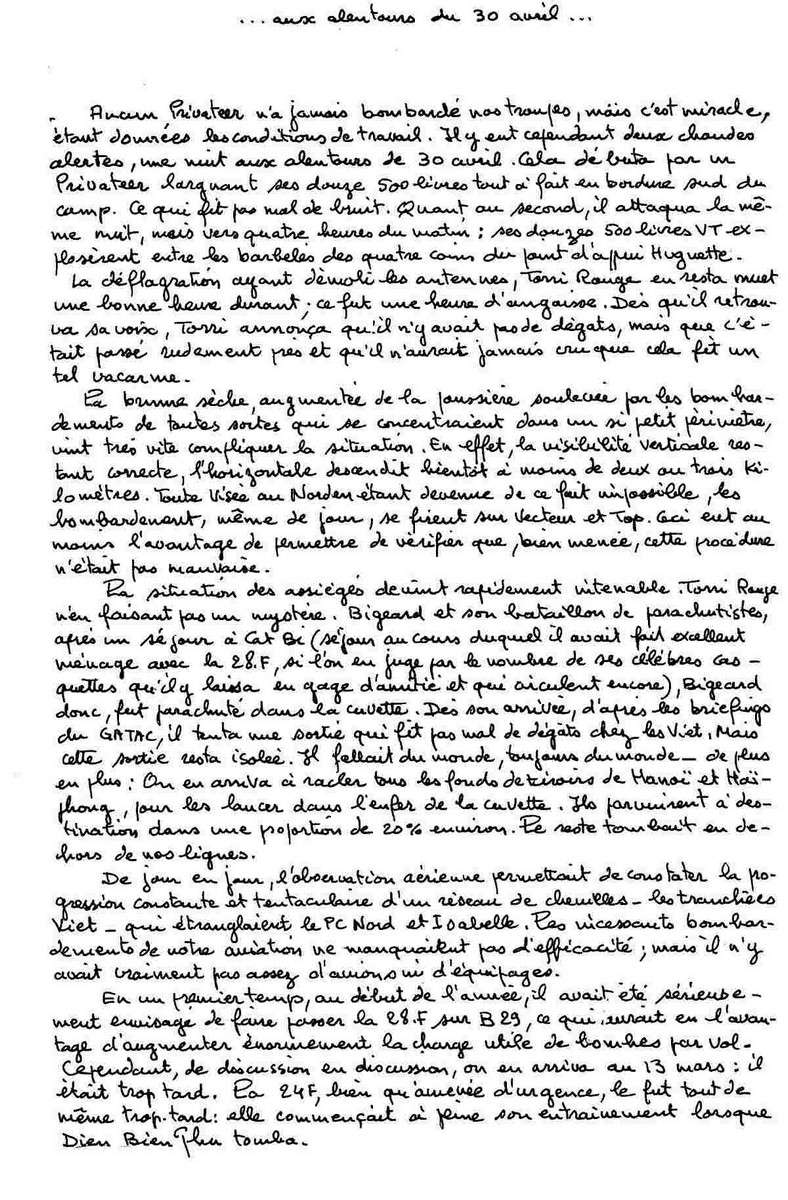 ... aux alentours du 30 avril ...
Aucun Privateer n'a jamais bombardé nos troupes, mais c'est miracle,
étant données les conditions de travail. Il y eut cependant deux chaudes
alertes, une nuit aux alentours de 30 avril. Cela débuta par un
Privateer larguant ses douze 500 livres tout à fait en bordure sud du
camp. Ce qui fit pas mal de bruit. Quant au second, il attaqua la mê-
me nuit, mais vers quatre heures du matin : ses douzes 500 livres VT ex-
plosèrent entre les barbelés des quatre coins du point d'appui Huguette.
La déflagration ayant démoli les antennes, Torri Rouge en resta muet
une bonne heure durant ; ce fut une heure d'angoisse. Dès qu'il retrou-
va sa voix, Torri annonça qu'il n'y avait pas de dégats, mais que c'é-
tait passé rudement près et qu'il n'aurait jamais cru que cela fît un
tel vacarme.
La brume sèche, augmentée de la poussière soulevée par les bombar-
dements de toutes sortes qui se concentraient dans un si petit périmètre,
vint très vite compliquer la situation. En effet, la visibilité verticale res-
tant correcte, l'horizontale descendit bientôt à moins de deux ou trois ki-
lomètres. Toute Visée au Norden étant devenue de ce fait impossible, les
bombardement, même de jour, se firent sur Vecteur et Top. Ceci eut au
moins l'avantage de permettre de vérifier que, bien menée, cette procédure
n'était pas mauvaise.
La situation des assiégés devint rapidement intenable. Torri Rouge
n'en faisant pas un mystère. Bigeard et son bataillon de parachutistes,
après un séjour à Cat Bi (séjour au cours duquel il avait fait excellent
ménage avec la 28.F, si l'on en juge par le nombre de ses célèbres cas-
quettes qu'il y laissa en gage d'amitié et qui circulent encore), Bigeard
donc, fut parachuté dans la cuvette. Dès son arrivée, d'après les briefings
du GATAC, il tenta une sortie qui fit pas mal de dégâts chez les Viet. Mais
cette sortie resta isolée. Il fallait du monde, toujours du monde - de plus
en plus : On en arriva à racler tous les fonds de tiroirs de Hanoï et Haï-
phong, pour les lancer dans l'enfer de la cuvette. Ils parvinrent à des-
tination dans une poportion de 20% environ. Le reste tombait en de-
hors de nos lignes.
De jour en jour, l'observation aérienne permettait de constater la po-
gression constante et tentaculaire d'un réseau de chenilles - les tranchées
Viet - qui étranglaient le PC Nord et Isabelle. Les incessants bombar-
dements de notre aviation ne manquaient pas d'efficacité ; mais il n'y
avait vraiment pas assez d'avions ni d'équipages.
En un premier temp, au début de l'année, il avait été sérieuse-
ment envisagé de faire passer la 28.F sur B29, ce qui aurait eu l'avan-
tage d'augmenter énormément la charge utile de bombes par vol.
Cependant, de discussion en discussion, on en arriva au 13 mars : il
était trop tard. La 24F, bien qu'amenée d'urgence, le fut tout de
même trop tard : elle commençait à peine son entraînement lorsque
Dien Bien Phu tomba.